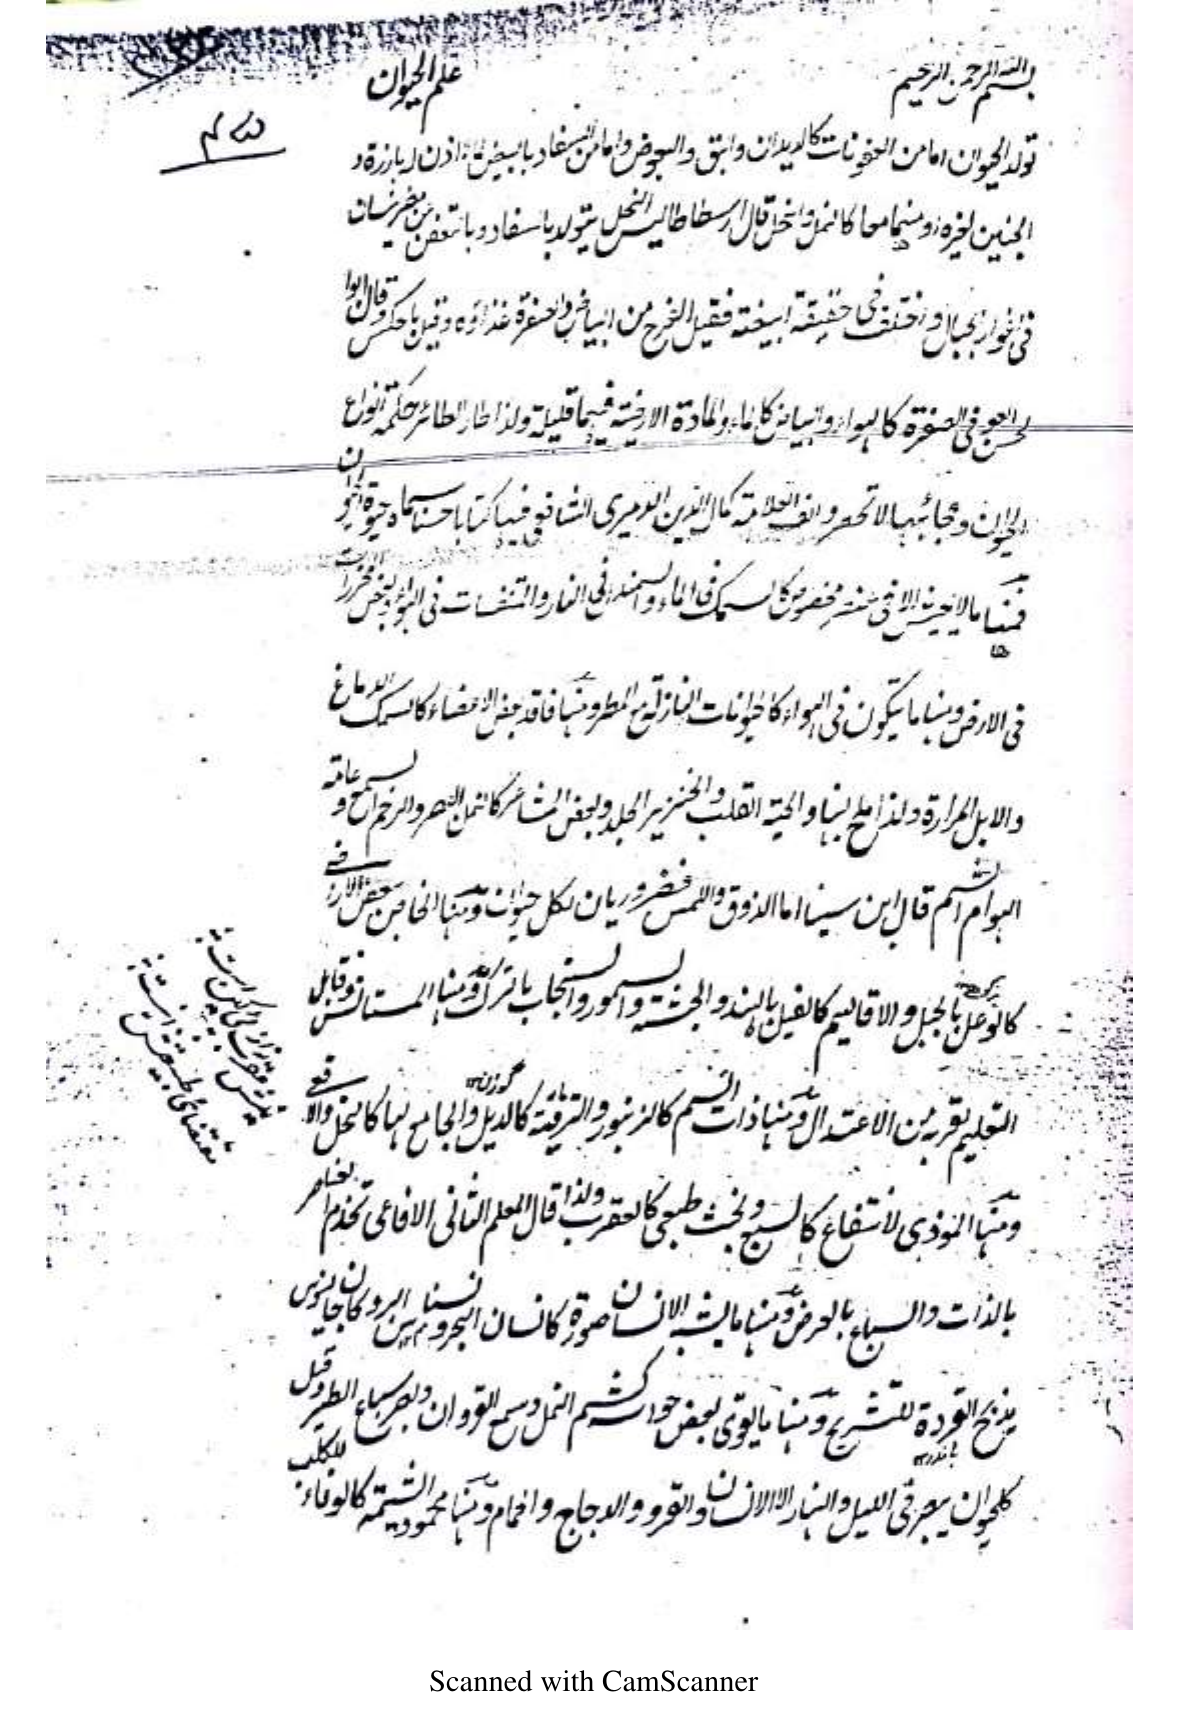 بسم الله الرحمن الرحيم
علم الحيوان
تولد الحيوان اما من العفونات كالديدان والبق والبعوض واما من السفاد بالبيض اذن له بارزة و
الجنين لغيره ومنهما معا كالنمل والنحل قال ارسطاطاليس النحل يتولد بالسفاد وبالتعفن من
فى اغوار الجبال واختلف فى حقيقة البيضة فقيل الفرخ من البياض والصفرة غذاؤه وقيل بالعكس وقال ابوا
لحسن العوفى الصفرة كالهواء والبياض كالماء والمادة الارضية فيهما قليلة ولذا طار الطائر حكمة انواع
الحيوان وعجائبها لا تحصر والف العلامة كمال الدين الدميرى الشافعى فيها كتابا حسنا سماه حيوة الحيوان
فمنها ما لا يعيش الا فى عنصر مخصوص كالسمك فى الماء والسمندر فى النار والمتنفسات فى الهواء وبعض الحشرات
فى الارض ومنها ما يتكون فى الهواء كالحيوانات النازلة مع المطر ومنها فاقد بعض الاعضاء كالسمك الدماغ
والابل المرارة ولذا ملح لبنها والحية القلب والخنزير الجلد ولبعض المشاعر كالنمل البصر والرخم السمع و عامة
الهوام الشم قال ابن سينا اما الذوق واللمس فضروريان لكل حيوان ومنها الخاص ببعض الاراضى
كالوعل بالجبل والاقاليم كالفيل بالهند والحبشة والسمور والسنجاب بالترك ومنها المستانس وقابل
التعليم بقربه من الاعتدال ومنها ذات السم كالزنبور والترياقية كالايل والجامع لهما كالنحل والافعى
گوزن
ومنها الموذى لانتفاع كالسبع ولخبث طبعى كالعقرب ولذا قال المعلم الثانى الافاعى تخدم العناصر
بالذات والسباع بالعرض ومنها ما يشبه الانسان صورة كانسان البحر ونسناس البر وكان جالينوس
يذبح القردة للتشريح ومنها ما يقوى بعض حواسه كشم النمل وسمع القردان وبصر سباع الطير وقيل
كل حيوان يبصر فى الليل والنهار الا الانسان والقرد والدجاج والحمام ومنها محمود الشيمة كالوفاء للكلب
Scanned with CamScanner